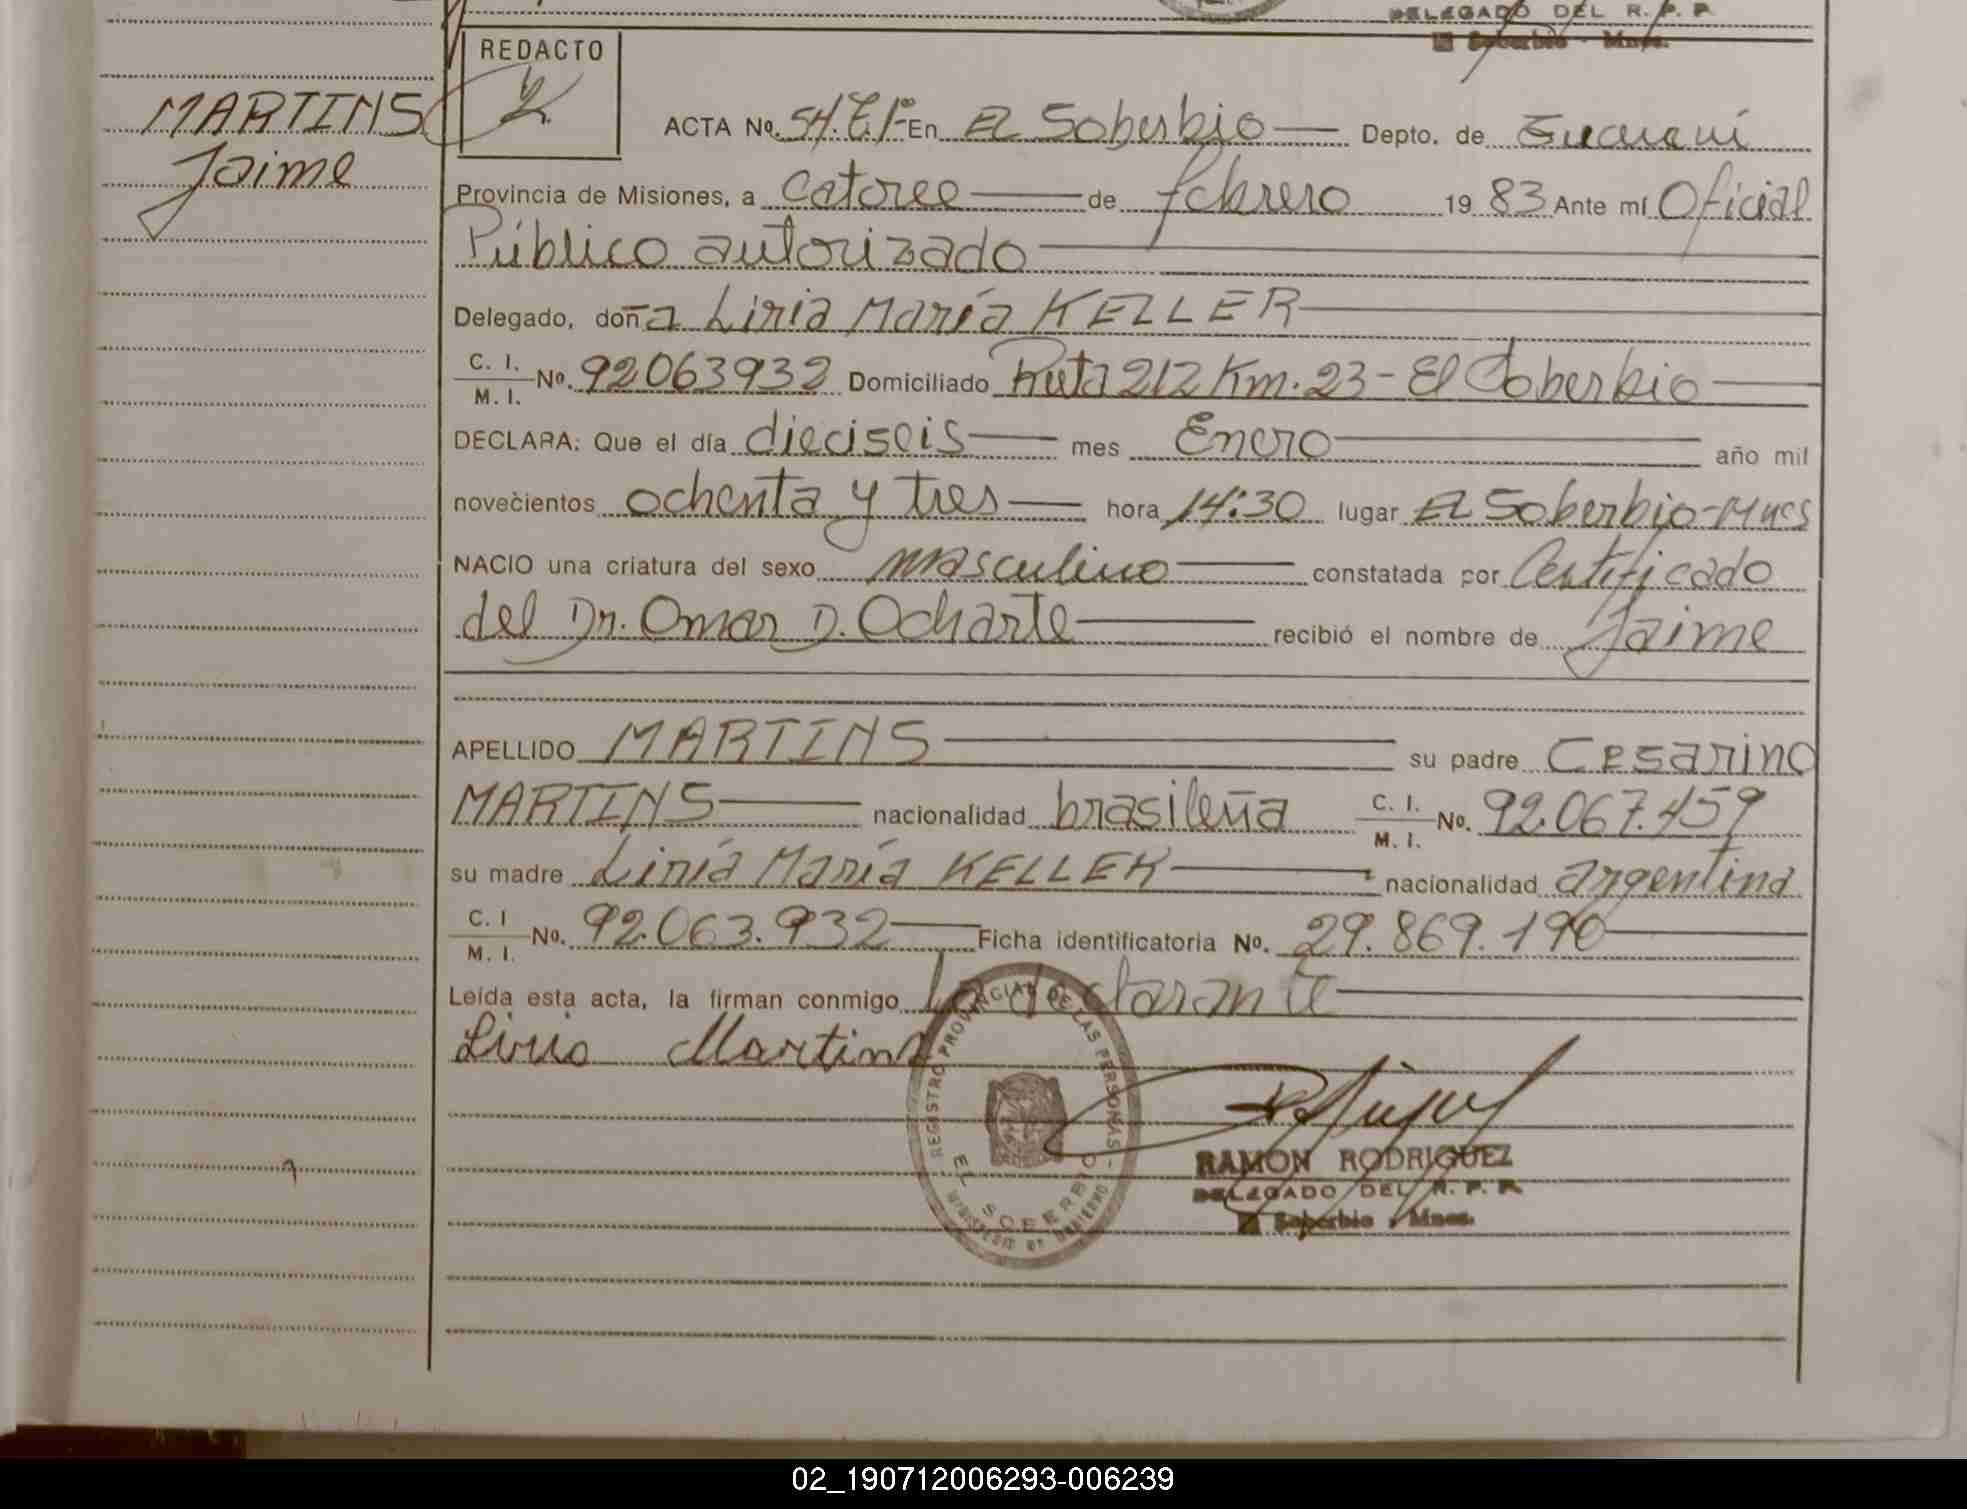 DELEGADO DEL R. P. P.
El Soberbio - Mnes.
REDACTO
MARTINS
Jaime
ACTA No. 54. T. 1º En El Soberbio Depto. de Guaraní
Provincia de Misiones, a catorce de febrero 1983 Ante mí Oficial
Público autorizado
Delegado, doña Liria María KELLER
C. I. M. I. No. 92063932 Domiciliado Ruta 212 Km. 23 - El Soberbio
DECLARA: Que el día dieciseis mes Enero año mil
novecientos ochenta y tres hora 14:30 lugar El Soberbio - Mnes
NACIO una criatura del sexo masculino constatada por Certificado
del Dr. Omar D. Ocharte recibió el nombre de Jaime
APELLIDO MARTINS su padre Cesarino
MARTINS nacionalidad brasileña C. I. M. I. No. 92.067.459
su madre Liria María KELLER nacionalidad argentina
C. I M. I. No. 92.063.932 Ficha identificatoria No. 29.869.190
Leída esta acta, la firman conmigo la declarante
Liria Martins
REGISTRO PROVINCIAL DE LAS PERSONAS -
EL SOBERBIO
MINISTERIO DE GOBIERNO
RAMON RODRIGUEZ
DELEGADO DEL R. P. P.
El Soberbio - Mnes.
02_190712006293-006239